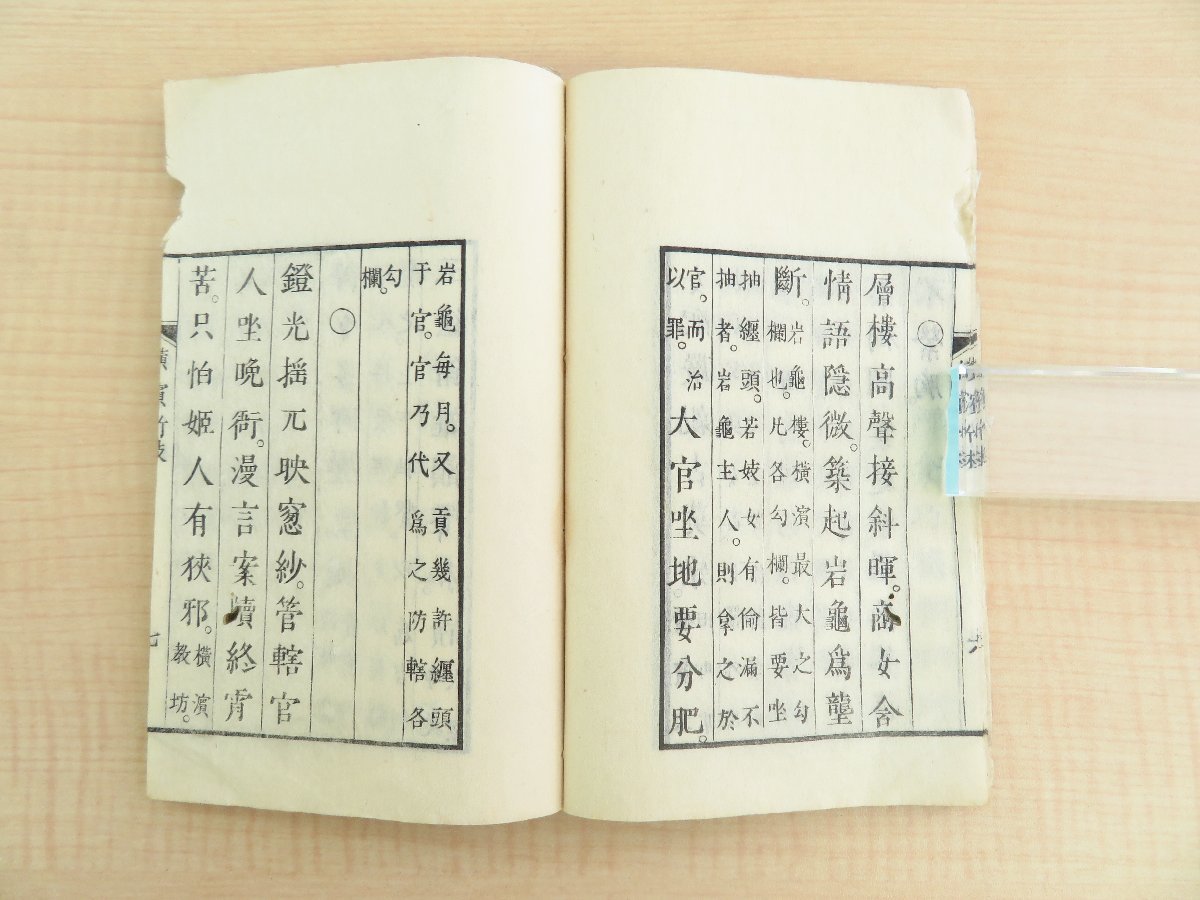 六
○
層樓高聲接斜暉。商女含
情語隱微。築起岩龜爲壟
斷。岩龜樓。橫濱最大之勾
欄也。凡各勾欄。皆要坐
抽纏頭。若妓女有偷漏不
抽者。岩龜主人。則拿之於
官。而治
以罪。大官坐地要分肥。
岩龜每月。又貢幾許纏頭
于官。官乃代爲之防轄各
勾
欄。
○
鐙光搖兀映窓紗。管轄官
人坐晚衙。漫言案牘終宵
苦。只怕姬人有狹邪。橫濱
敎坊。
橫濱竹枝
七